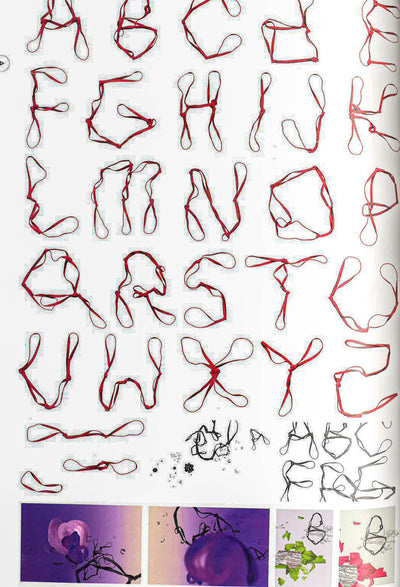 A B C D E
F G H I J K
L M N O P
Q R S T U
V W X Y Z
A B C